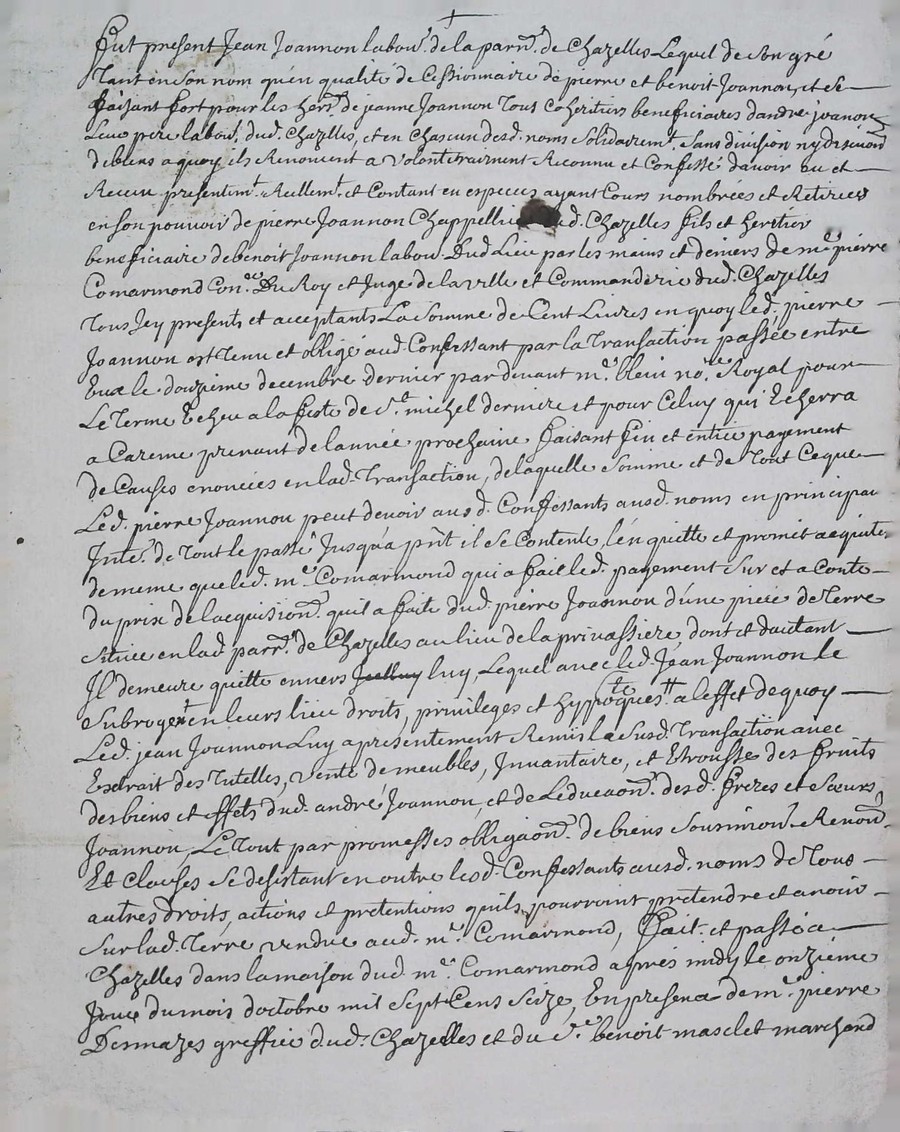 fut present Jean Joannon labour. de la parr.e de Chazelles Lequel de son gré
tant en son nom qu'en qualité de Cessionnaire de pierre et benoit Joannon, et se
faisant fort pour les her.rs de jeanne Joannon tous Coheritiers beneficiaires d'andre joanon
Leur pere labour. dud. Chazelles, et en Chascun desd. noms Solidairem.t Sans division ny discution
de biens a quoy ils Renoncent a volontairement Reconnu et Confessé d'avoir eu et
Receu presentem.t Reellem.t et Contant en especes ayant Cours nombrées et Retirées
en son pouvoir de pierre Joannon Chappellier dud. Chazelles fils et heritier
beneficiaire de benoit Joannon labour. Dud Lieu par les mains et deniers de m.e pierre
Comarmond Con.er Du Roy et Juge de la ville et Commanderie dud. Chazelles
tous Jcy presents et acceptants La Somme de Cent Livres en quoy led. pierre
Joannon est tenu et obligé aud. Confessant par la transaction passée entre
Eux le douzieme decembre dernier par devant m.e blein no.re Royal pour
Le terme Echeu a la feste de S.t michel derniere et pour Celuy qui Echerra
a Careme prenant de l'année prochaine faisant fin et entier payement
de Causes enoncées en lad. transaction, de laquelle Somme et de tout Ceque
Led. pierre Joannon peut devoir ausd. Confessants ausd. noms en principal
Inte.t de tout le passé Jusqu'a pnt il se Contente, l'en quitte et promit acquiter
de meme que led. m.e Comarmond qui a fait led. payement Sur et a Conte
du prix de lacquision.n qu'il a faite dud. pierre Joannon d'une piece de terre
située en lad. parr.e de Chazelles au lieu de la privassiere dont et d'autant
Il demeure quitte envers luy Lequel avec led. Jean Joannon le
Subrogent en leurs lieu droits, privileges et hyppoteques a l'effet de quoy
Led. jean Joannon Luy a presentement Remis la Susd. transaction avec
Extrait des tutelles, vente de meubles, Inventaire, et Etrousse des fruits
des biens et effets dud. andré Joannon, et de L'educaon.n desd. freres et Sœurs
Joannon, Le tout par promesses obligaon.n de biens Soumi.on Renon.n
Et Clauses Se desistant en outre lesd. Confessants ausd. noms de tous
autres droits, actions et pretentions qu'ils pourroint pretendre et avoir
Sur lad. terre vendue aud. m.e Comarmond, fait et passé a
Chazelles dans la maison dud. m.e Comarmond apres midy le onzieme
Jour du mois d'octobre mil Sept Cens Seize En presence de m.e pierre
Desmazes greffier dud. Chazelles et du S.r benoit masclet marchand